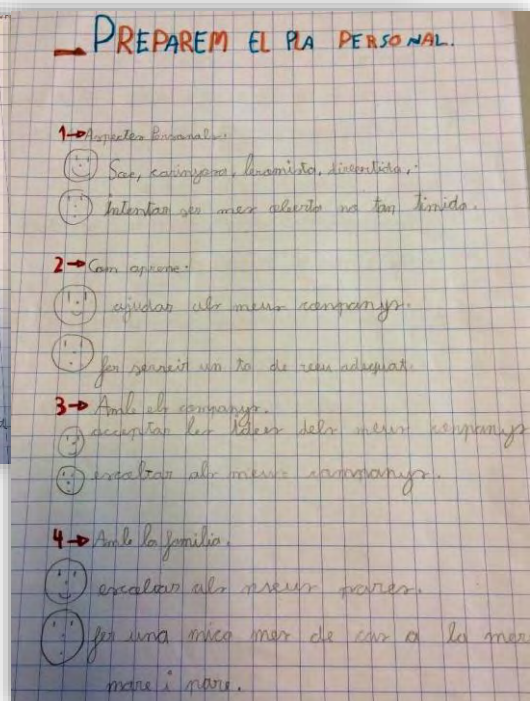 PREPAREM EL PLA PERSONAL.
1→Aspectes Personals.
Soc, carinyosa, divertida,
intentar ser mes tan timida.
2→Com aprenc.
ajudar als meus companys.
fer un to de veu adequat.
3→Amb els companys.
acceptar les idees dels meus companys
escoltar als meus companys.
4→Amb la familia.
escoltar als meus pares.
fer una mica mes de cas a la meva
mare i pare.